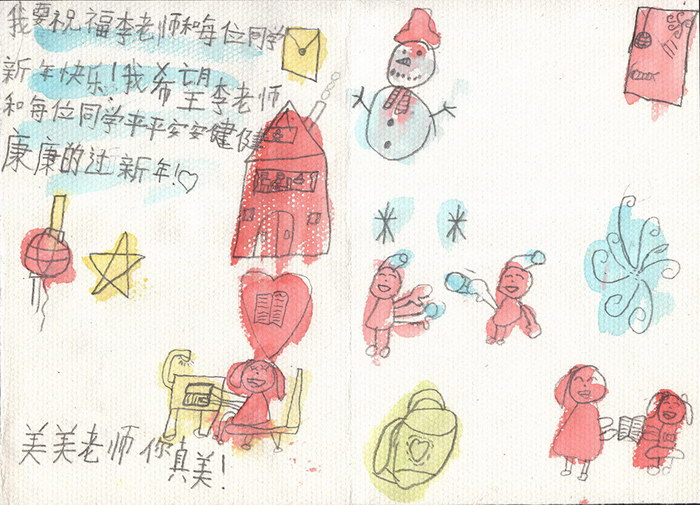 我要祝福李老师和每位同学
新年快乐!我希望李老师
和每位同学平平安安健健
康康的过新年!♡
美美老师你真美!